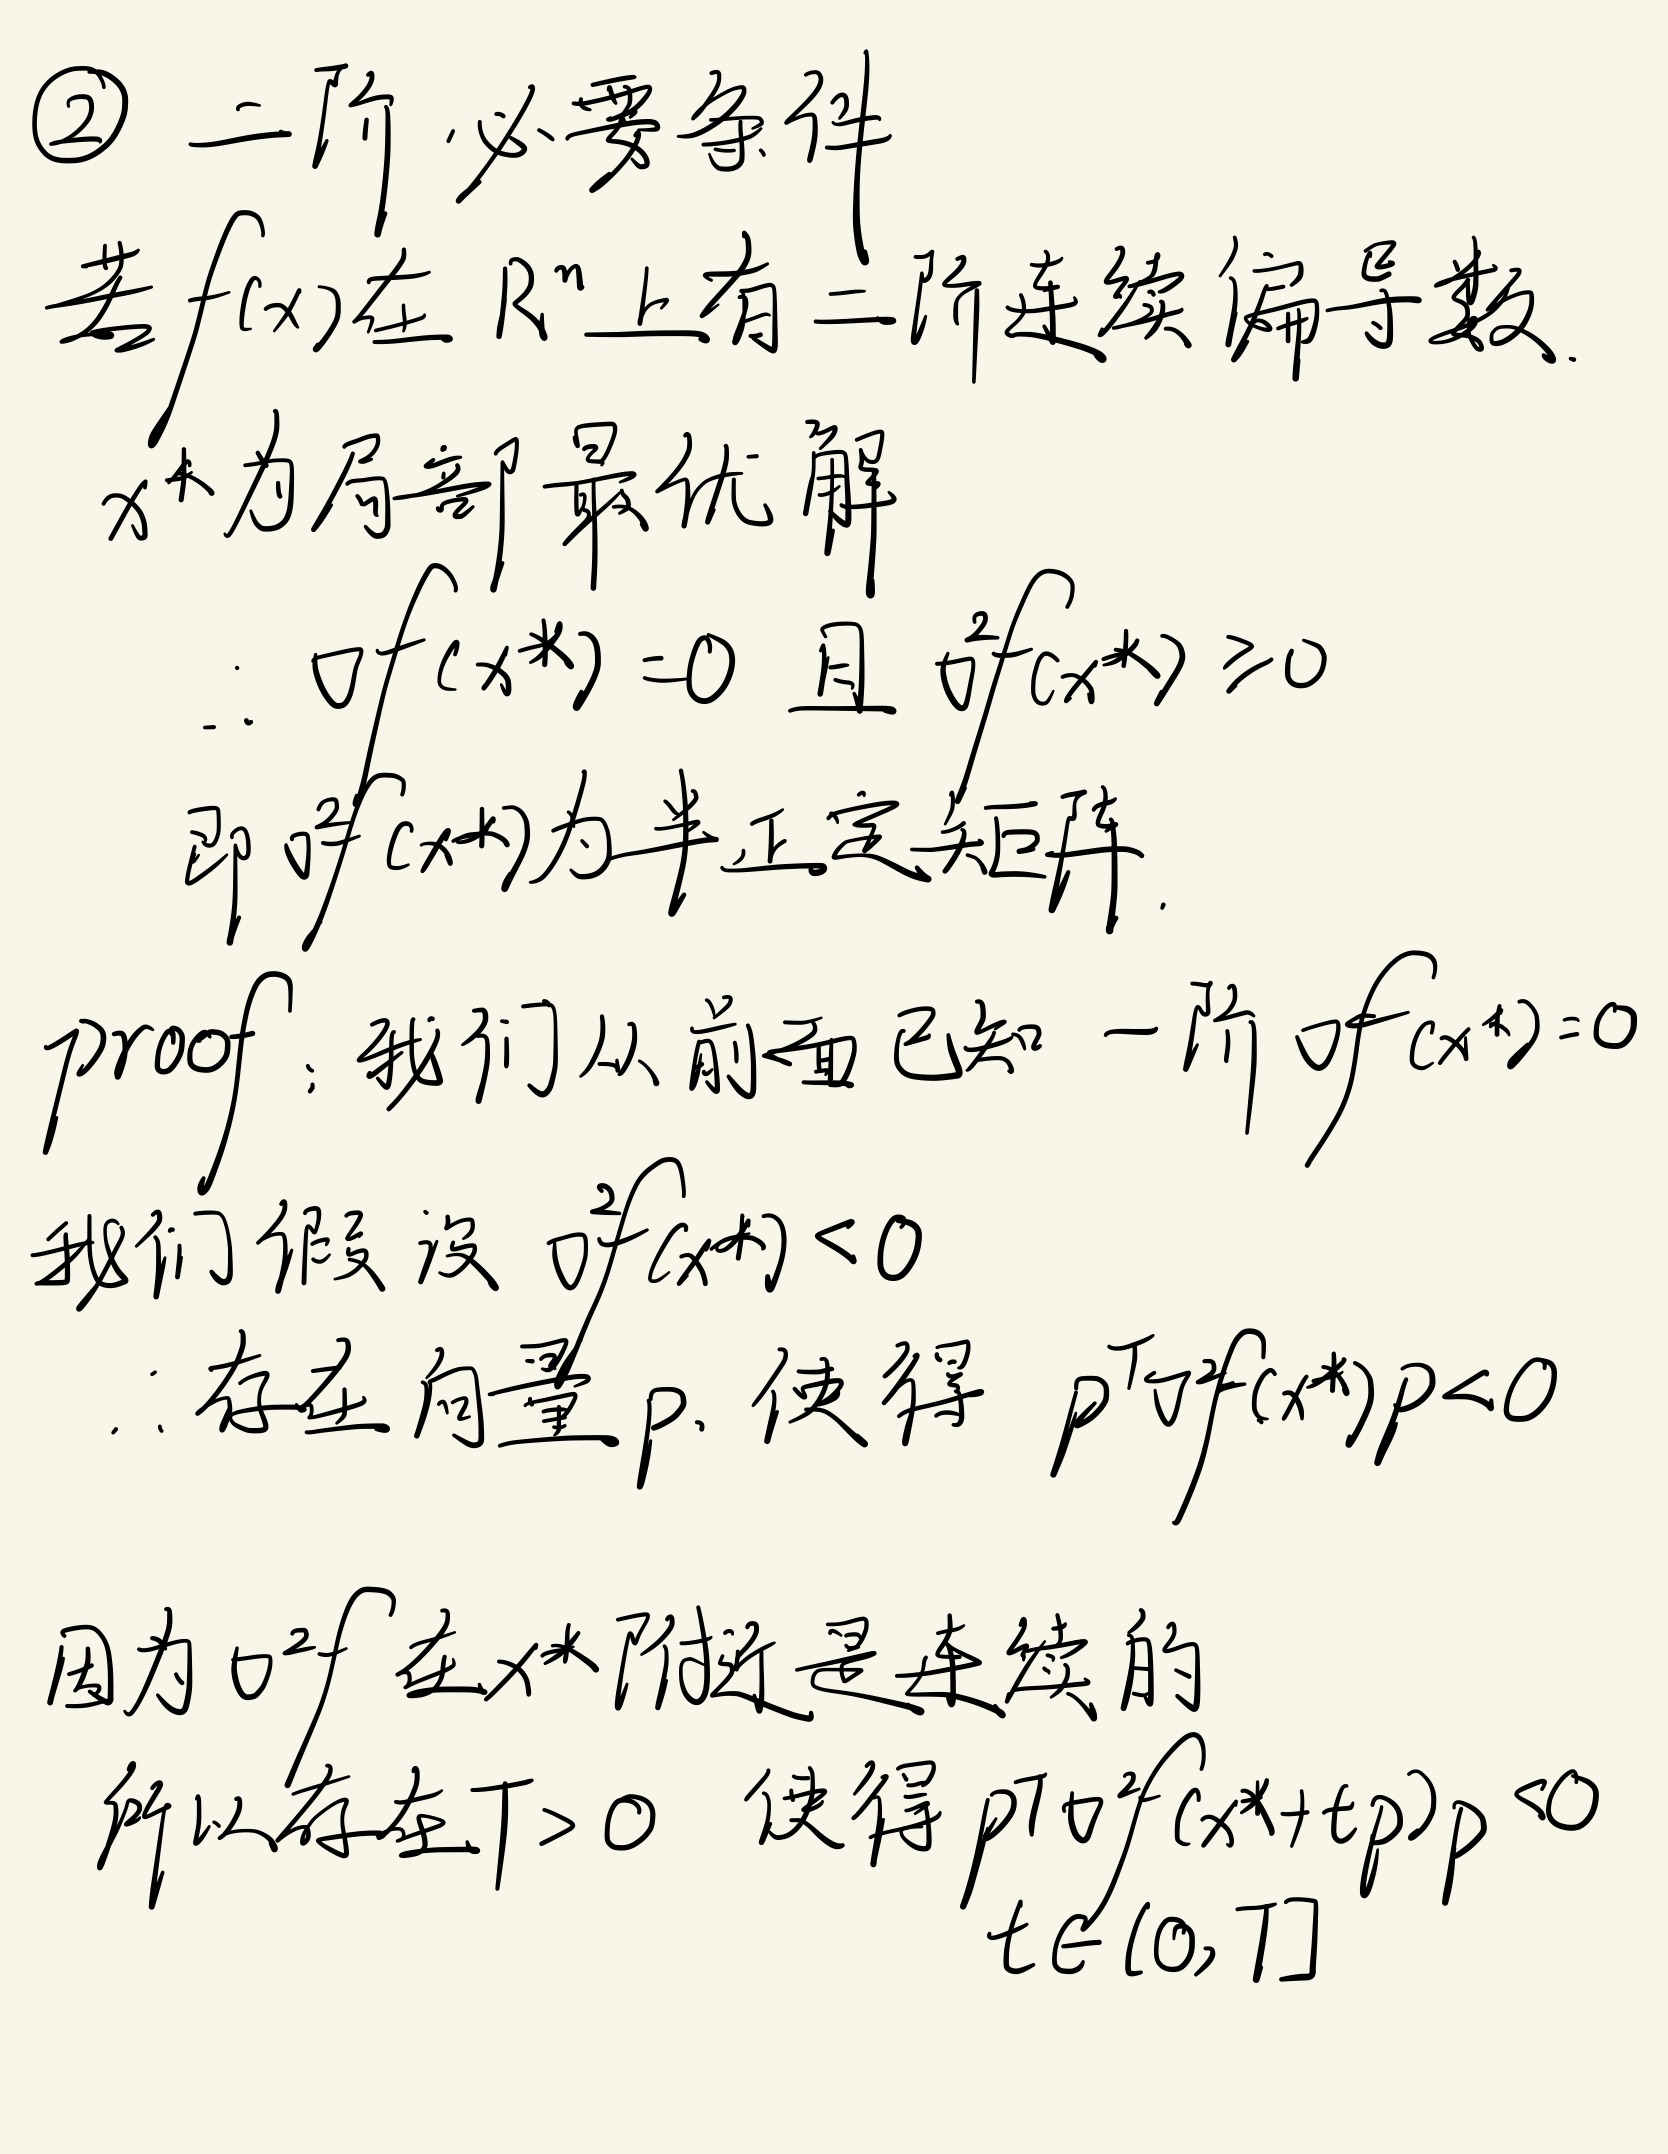 ② 二阶必要条件
若 f(x)在 Rⁿ上有二阶连续偏导数.
x*为局部最优解
∴ ∇f(x*)=0 且 ∇²f(x*)≥0
即 ∇²f(x*)为半正定矩阵.
proof: 我们从前面已知 一阶 ∇f(x*)=0
我们假设 ∇²f(x*)<0
∴ 存在向量p. 使得 pᵀ∇²f(x*)p<0
因为 ∇²f 在x*附近是连续的
所以存在T>0 使得 pᵀ∇²f(x*+tp)p<0
t∈(0,T]